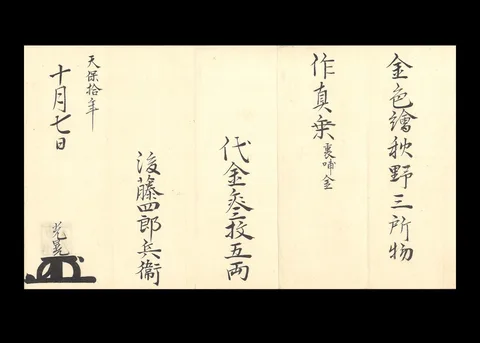 金色繪秋野三所物
作真乗裏哺金
代金参枚五両
後藤四郎兵衞
天保拾年
十月七日
光晃